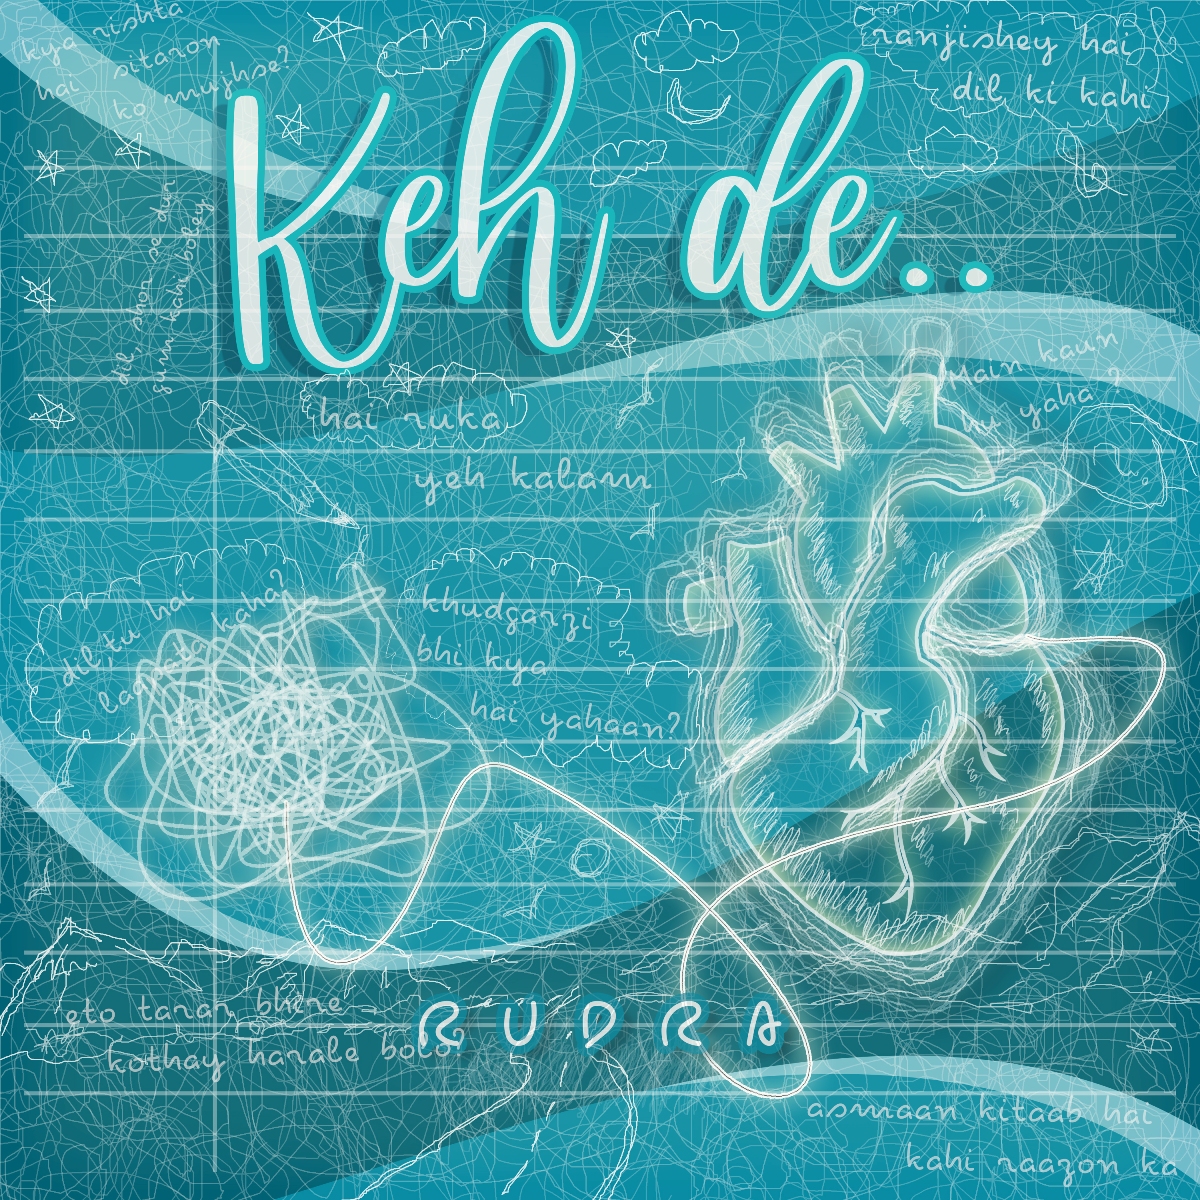 kya rishta
hai sitaron
ko mujhse?
Keh de..
ranjishey hai
dil ki kahi
dil shor se dur
sunn kahi boley
hai ruka
yeh kalam
Main kaun
hu yaha?
dil, tu hai
laapata kaha?
khudgarzi
bhi kya
hai yahaan?
eto taran bhire
kothay harale bolo
RUDRA
asmaan kitaab hai
kahi raazon ka